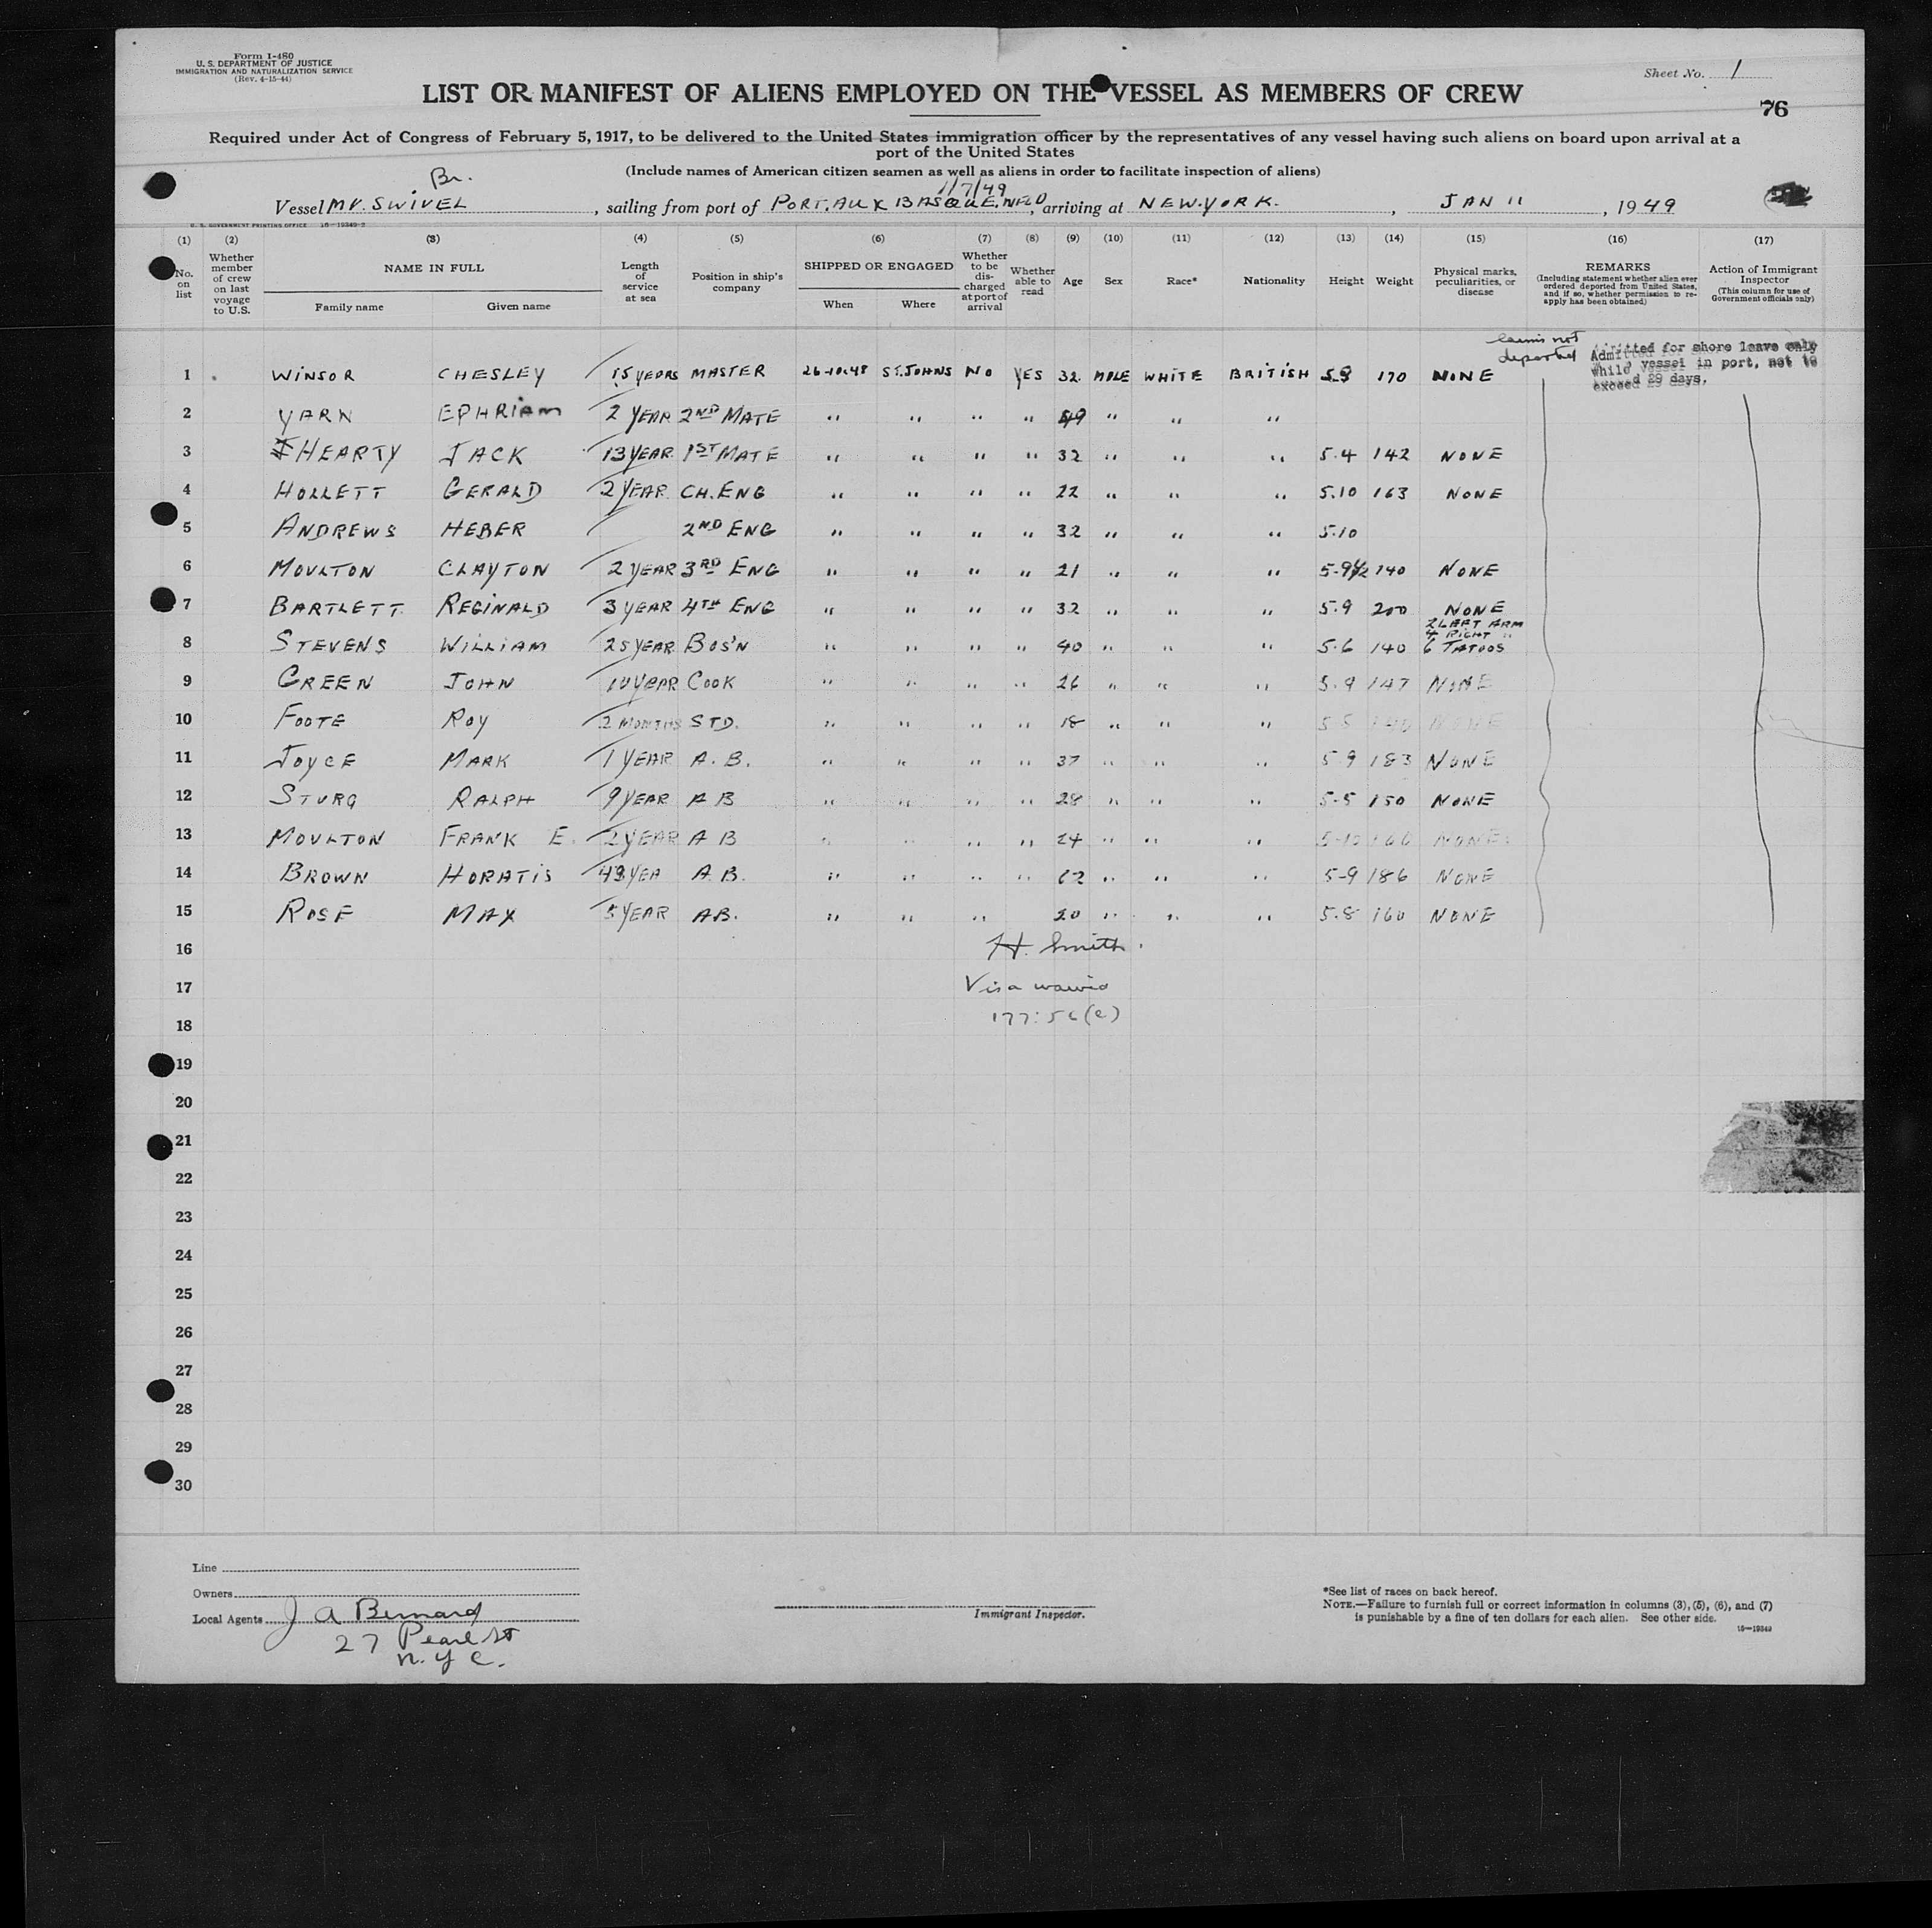 Form I-480
U. S. DEPARTMENT OF JUSTICE
IMMIGRATION AND NATURALIZATION SERVICE
(Rev. 4-15-44)
Sheet No. 1
LIST OR MANIFEST OF ALIENS EMPLOYED ON THE VESSEL AS MEMBERS OF CREW
76
Required under Act of Congress of February 5, 1917, to be delivered to the United States immigration officer by the representatives of any vessel having such aliens on board upon arrival at a
port of the United States
(Include names of American citizen seamen as well as aliens in order to facilitate inspection of aliens)
Br. 1/7/49
Vessel MV. SWIVEL, sailing from port of PORT. AUX BASQUE. NFLD, arriving at NEW. YORK., JAN 11, 1949
U. S. GOVERNMENT PRINTING OFFICE 16—19349-2
(1) (2) (3) (4) (5) (6) (7) (8) (9) (10) (11) (12) (13) (14) (15) (16) (17)
No. on list
Whether member of crew on last voyage to U.S.
NAME IN FULL
Family name Given name
Length of service at sea
Position in ship's company
SHIPPED OR ENGAGED
When Where
Whether to be discharged at port of arrival
Whether able to read
Age Sex Race* Nationality Height Weight
Physical marks, peculiarities, or disease
REMARKS
(Including statement whether alien ever ordered deported from United States, and if so, whether permission to reapply has been obtained)
Action of Immigrant Inspector
(This column for use of Government officials only)
not
deported
Admitted for shore leave only
while vessel in port, not to
exceed 29 days.
1 WINSOR CHESLEY 15 YEARS MASTER 26-10-48 ST. JOHNS NO YES 32 MALE WHITE BRITISH 5.9 170 NONE
2 YARN EPHRIAM 2 YEAR 2ND MATE " " " " 49 " " "
3 HEARTY JACK 13 YEAR 1ST MATE " " " " 32 " " " 5.4 142 NONE
4 HOLLETT GERALD 2 YEAR CH. ENG " " " " 22 " " " 5.10 163 NONE
5 ANDREWS HEBER 2ND ENG " " " " 32 " " " 5.10
6 MOULTON CLAYTON 2 YEAR 3RD ENG " " " " 21 " " " 5-9½ 140 NONE
7 BARTLETT REGINALD 3 YEAR 4TH ENG " " " " 32 " " " 5.9 200 NONE
2 LEFT ARM
4 RIGHT "
8 STEVENS WILLIAM 25 YEAR BOS'N " " " " 40 " " " 5.6 140 6 TATOOS
9 GREEN JOHN 10 YEAR COOK " " " " 26 " " " 5.9 147 NONE
10 FOOTE ROY 2 MONTHS STD. " " " " 18 " " " 5 5 140 NONE
11 JOYCE MARK 1 YEAR A. B. " " " " 37 " " " 5 9 183 NONE
12 STURG RALPH 9 YEAR A B " " " " 28 " " " 5-5 150 NONE
13 MOULTON FRANK E. 2 YEAR A B " " " " 24 " " " 5-10 166 NONE
14 BROWN HORATIS 43 YEA A. B. " " " " 62 " " " 5-9 186 NONE
15 ROSE MAX 5 YEAR AB. " " " 20 " " " 5.8 160 NONE
16 H. Smith.
17 Visa waived
18 177:56(c)
19
20
21
22
23
24
25
26
27
28
29
30
Line
Owners
Local Agents J A Bernard
27 Pearl St
N. Y C.
Immigrant Inspector.
*See list of races on back hereof.
NOTE.—Failure to furnish full or correct information in columns (3), (5), (6), and (7)
is punishable by a fine of ten dollars for each alien. See other side.
16—19349